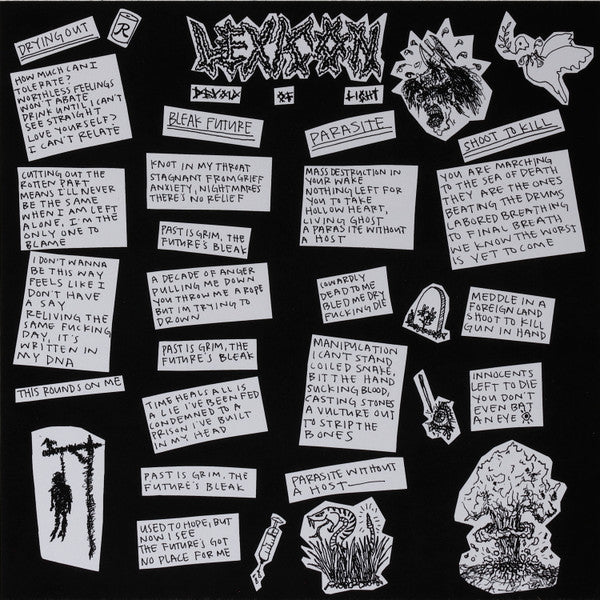 LEXICÖN
DEVOID OF LIGHT
DRYING OUT
R
HOW MUCH CAN I
TOLERATE?
WORTHLESS FEELINGS
WON'T ABATE
DRINK UNTIL I CAN'T
SEE STRAIGHT
LOVE YOURSELF?
I CAN'T RELATE
CUTTING OUT THE
ROTTEN PART
MEANS I'LL NEVER
BE THE SAME
WHEN I AM LEFT
ALONE, I'M THE
ONLY ONE TO
BLAME
I DON'T WANNA
BE THIS WAY
FEELS LIKE I
DON'T HAVE
A SAY
RELIVING THE
SAME FUCKING
DAY, IT'S
WRITTEN IN
MY DNA
THIS ROUNDS ON ME
BLEAK FUTURE
KNOT IN MY THROAT
STAGNANT FROM GRIEF
ANXIETY, NIGHTMARES
THERE'S NO RELIEF
PAST IS GRIM, THE
FUTURE'S BLEAK
A DECADE OF ANGER
PULLING ME DOWN
YOU THROW ME A ROPE
BUT IM TRYING TO
DROWN
PAST IS GRIM, THE
FUTURE'S BLEAK
TIME HEALS ALL IS
A LIE I'VE BEEN FED
CONDEMNED TO A
PRISON I'VE BUILT
IN MY HEAD
PAST IS GRIM, THE
FUTURE'S BLEAK
USED TO HOPE, BUT
NOW I SEE
THE FUTURE'S GOT
NO PLACE FOR ME
PARASITE
MASS DESTRUCTION IN
YOUR WAKE
NOTHING LEFT FOR
YOU TO TAKE
HOLLOW HEART,
LIVING GHOST
A PARASITE WITHOUT
A HOST
COWARDLY
DEAD TO ME
BLED ME DRY
FUCKING DIE
MANIPULATION
I CAN'T STAND
COILED SNAKE,
BIT THE HAND
SUCKING BLOOD,
CASTING STONES
A VULTURE OUT
TO STRIP THE
BONES
PARASITE WITHOUT
A HOST
SHOOT TO KILL
YOU ARE MARCHING
TO THE SEA OF DEATH
THEY ARE THE ONES
BEATING THE DRUMS
LABORED BREATHING
TO FINAL BREATH
WE KNOW THE WORST
IS YET TO COME
MEDDLE IN A
FOREIGN LAND
SHOOT TO KILL
GUN IN HAND
INNOCENTS
LEFT TO DIE
YOU DON'T
EVEN BAT
AN EYE